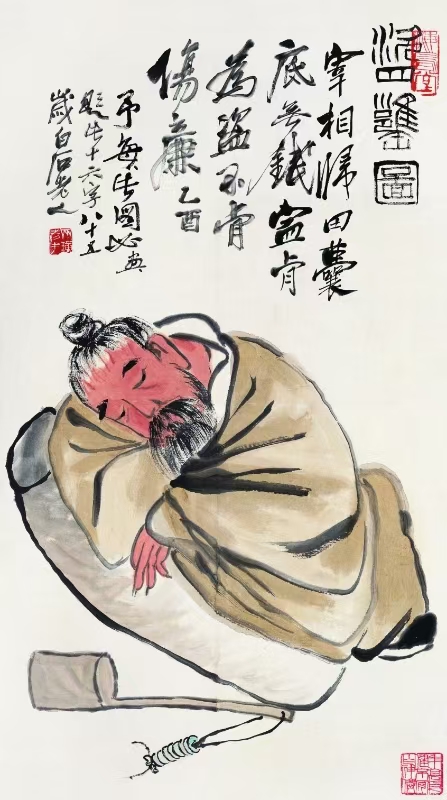 盜甕圖
宰相歸田囊
底無錢寧肯
為盜不肯
傷廉 乙酉
予每作圖必
題此十六字八十五
歲白石老人